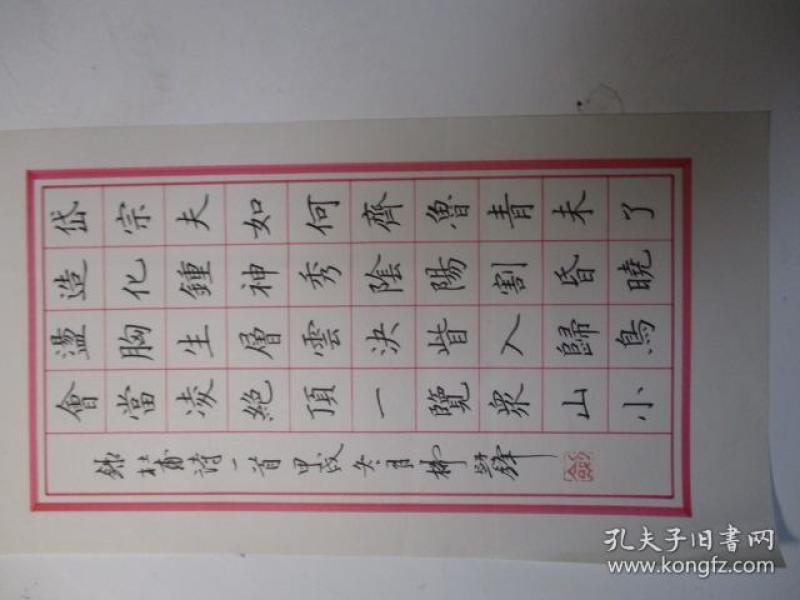 岱宗夫如何齊魯青未了
造化鍾神秀陰陽割昏曉
盪胸生層雲決眥入歸鳥
會當凌絶頂一覽衆山小
錄杜甫詩一首甲戌冬月柳鋒
孔夫子旧书网
www.kongfz.com